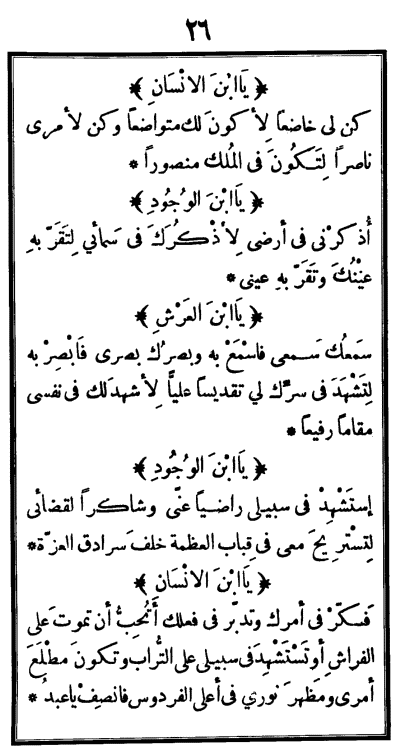 ٢٦
﴿ يَا ابْنَ الانْسَانِ ﴾
كن لى خاضعاً لِأكونَ لك متواضعاً وكن لأمرى
ناصراً لِتَكُونَ فى المُلك منصوراً *
﴿ يَا ابْنَ الوُجُودِ ﴾
أُذكرْنى فى أرضى لِأذْكُرَكَ فى سَمائي لِتَقَرّ بهِ
عيْنُكَ وتَقَرّ بهِ عينى *
﴿ يَا ابْنَ العَرْشِ ﴾
سَمعُك سَمعى فاسْمَعْ به وبصرُك بصرى فَابْصِرْ به
لِتَشْهَدَ فى سرّك لي تقديساً عليّاً لِأشهدلك فى نفسى
مقاماً رفيعاً *
﴿ يَا ابْنَ الوُجُودِ ﴾
إستَشْهِدْ فى سبيلى راضياً عنّى وشاكراً لقضائى
لِتسْتريحَ معى فى قِباب العظمة خلفَ سرادق العزّة *
﴿ يَا ابْنَ الانْسَانِ ﴾
فَكّرْ فى أمرك وتدبّر فى فعلك أَتُحِبُّ أن تموتَ على
الفراشِ أو تَسْتَشْهِدَ فى سبيلى على التُّراب وتكونَ مطْلَعَ
أمرى ومظهرَ نورى فى أعلى الفردوس فانصِفْ ياعبدُ *